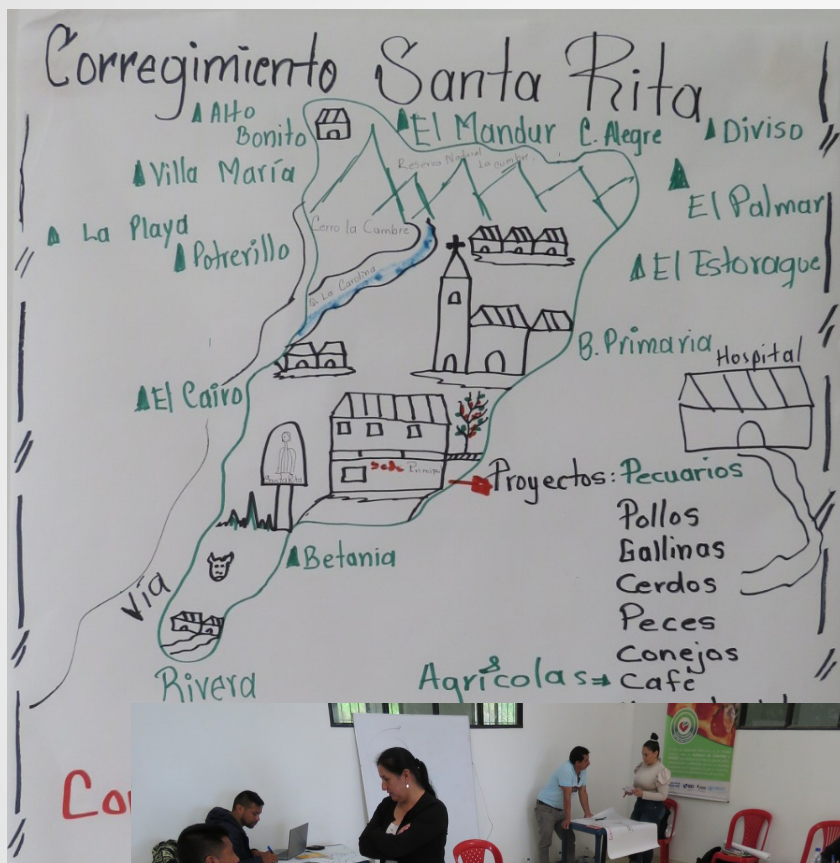 Corregimiento Santa Rita
Alto
Bonito
El Mandur
C. Alegre
Diviso
Villa María
Reserva Natural La cumbre
El Palmar
La Playa
Potrerillo
Cerro la Cumbre
El Estoraque
Q. La Carolina
B. Primaria
Hospital
El Cairo
Santa Rita
Sede Principal
Proyectos: Pecuarios
Pollos
Gallinas
Cerdos
Peces
Conejos
Betania
Vía
Rivera
Agrícolas → Café